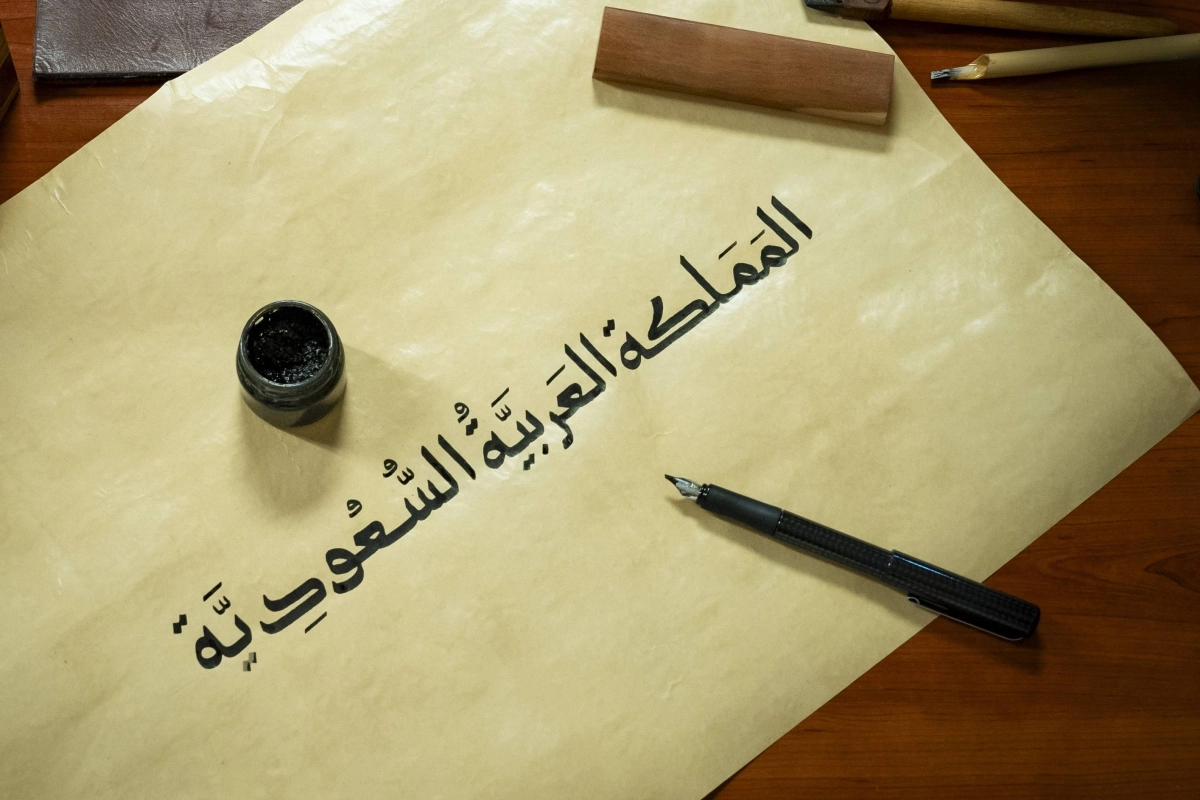 المَمَلكة العَربيَّةُ السُّعُودِيَّة